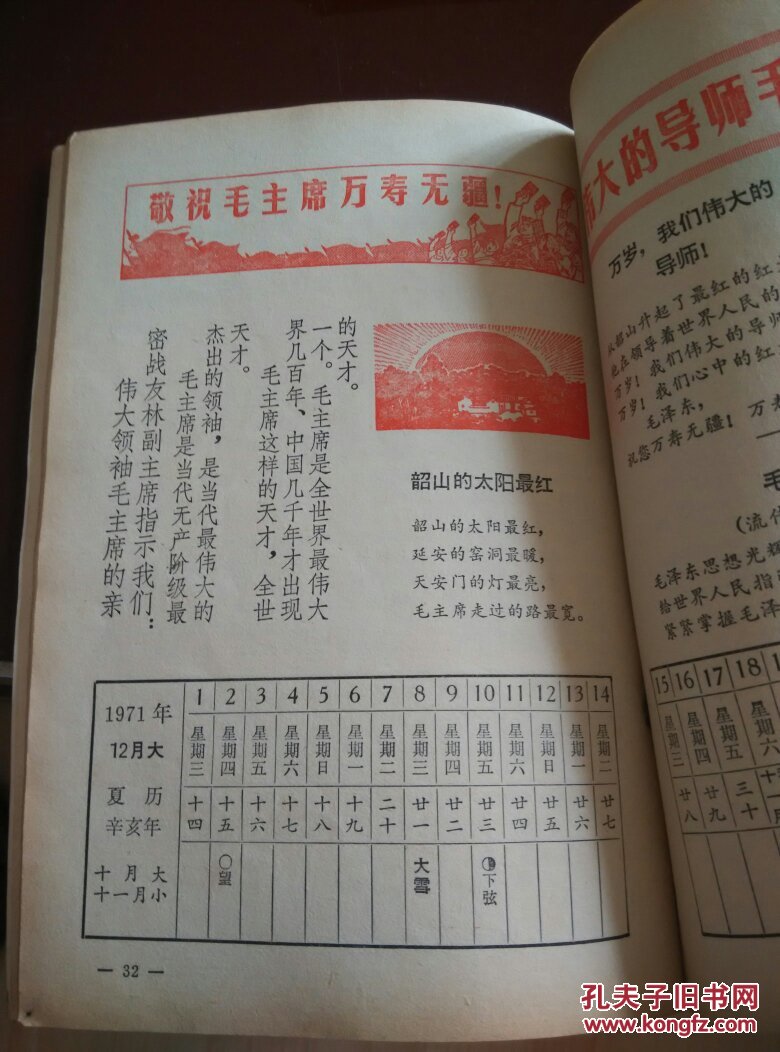 敬祝毛主席万寿无疆!
伟大领袖毛主席的亲
密战友林副主席指示我们：
毛主席是当代无产阶级最
杰出的领袖，是当代最伟大的
天才。
毛主席这样的天才，全世
界几百年、中国几千年才出现
一个。毛主席是全世界最伟大
的天才。
韶山的太阳最红
韶山的太阳最红，
延安的窑洞最暖，
天安门的灯最亮，
毛主席走过的路最宽。
1971年 1 2 3 4 5 6 7 8 9 10 11 12 13 14
12月大 星期三 星期四 星期五 星期六 星期日 星期一 星期二 星期三 星期四 星期五 星期六 星期日 星期一 星期二
夏历
辛亥年 十四 十五 十六 十七 十八 十九 二十 廿一 廿二 廿三 廿四 廿五 廿六 廿七
十月大
十一月小 望 大雪 下弦
— 32 —
大的导师毛
万岁，我们伟大的
导师！
从韶山升起了最红的红
他在领导着世界人民的
万岁！我们伟大的导师
万岁！我们心中的红
毛泽东，
祝您万寿无疆！万
毛泽东思想光辉
给世界人民指
紧紧掌握毛泽
15 16 17 18
星期三 星期四 星期五 星期六
廿八 廿九 三十
孔夫子旧书网
www.kongfz.com